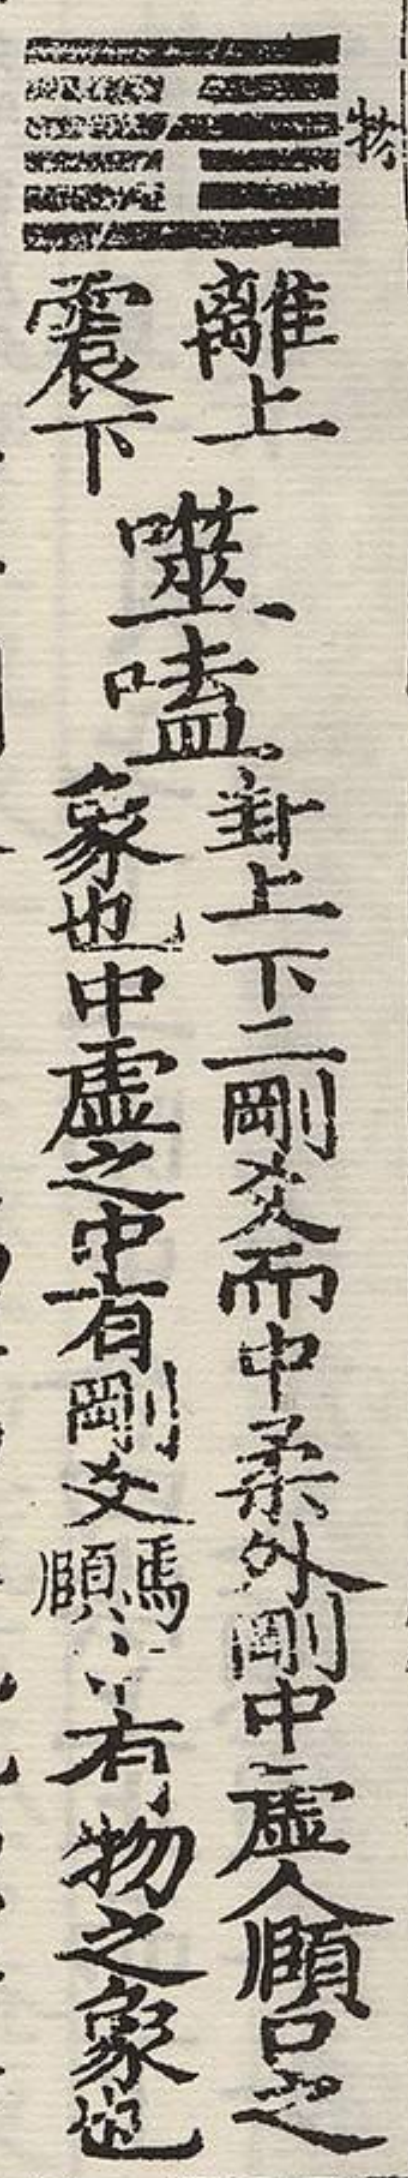 物
離上
震下
噬嗑
卦上下二剛爻而中柔外剛中虛人頤口之
象也中虛之中有剛爻焉頤中有物之象也